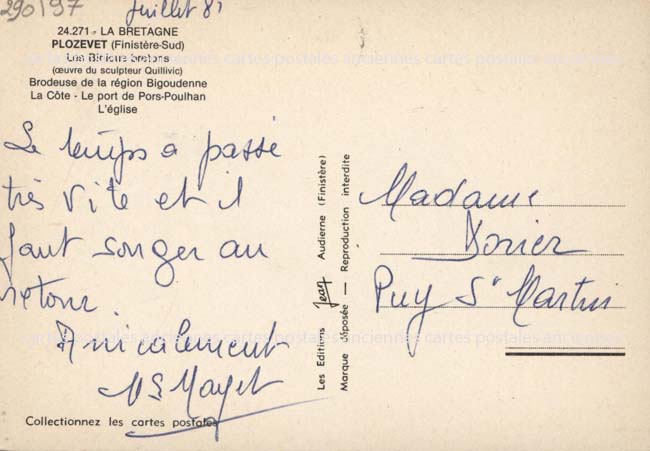 290197
Juillet 81
24.271 - LA BRETAGNE
PLOZEVET (Finistère-Sud)
Les Binious bretons
(œuvre du sculpteur Quillivic)
Brodeuse de la région Bigoudenne
La Côte - Le port de Pors-Poulhan
L'église
Le temps a passé
très vite et il
faut songer au
retour.
Amicalement
Mayet
Collectionnez les cartes postales
Les Editions Jean Audierne (Finistère)
Marque déposée — Reproduction interdite
Madame
Dorier
Puy St Martin
cartes postales anciennes cartes postales anciennes cartes postales anciennes
cartes postales anciennes cartes postales anciennes cartes postales anciennes